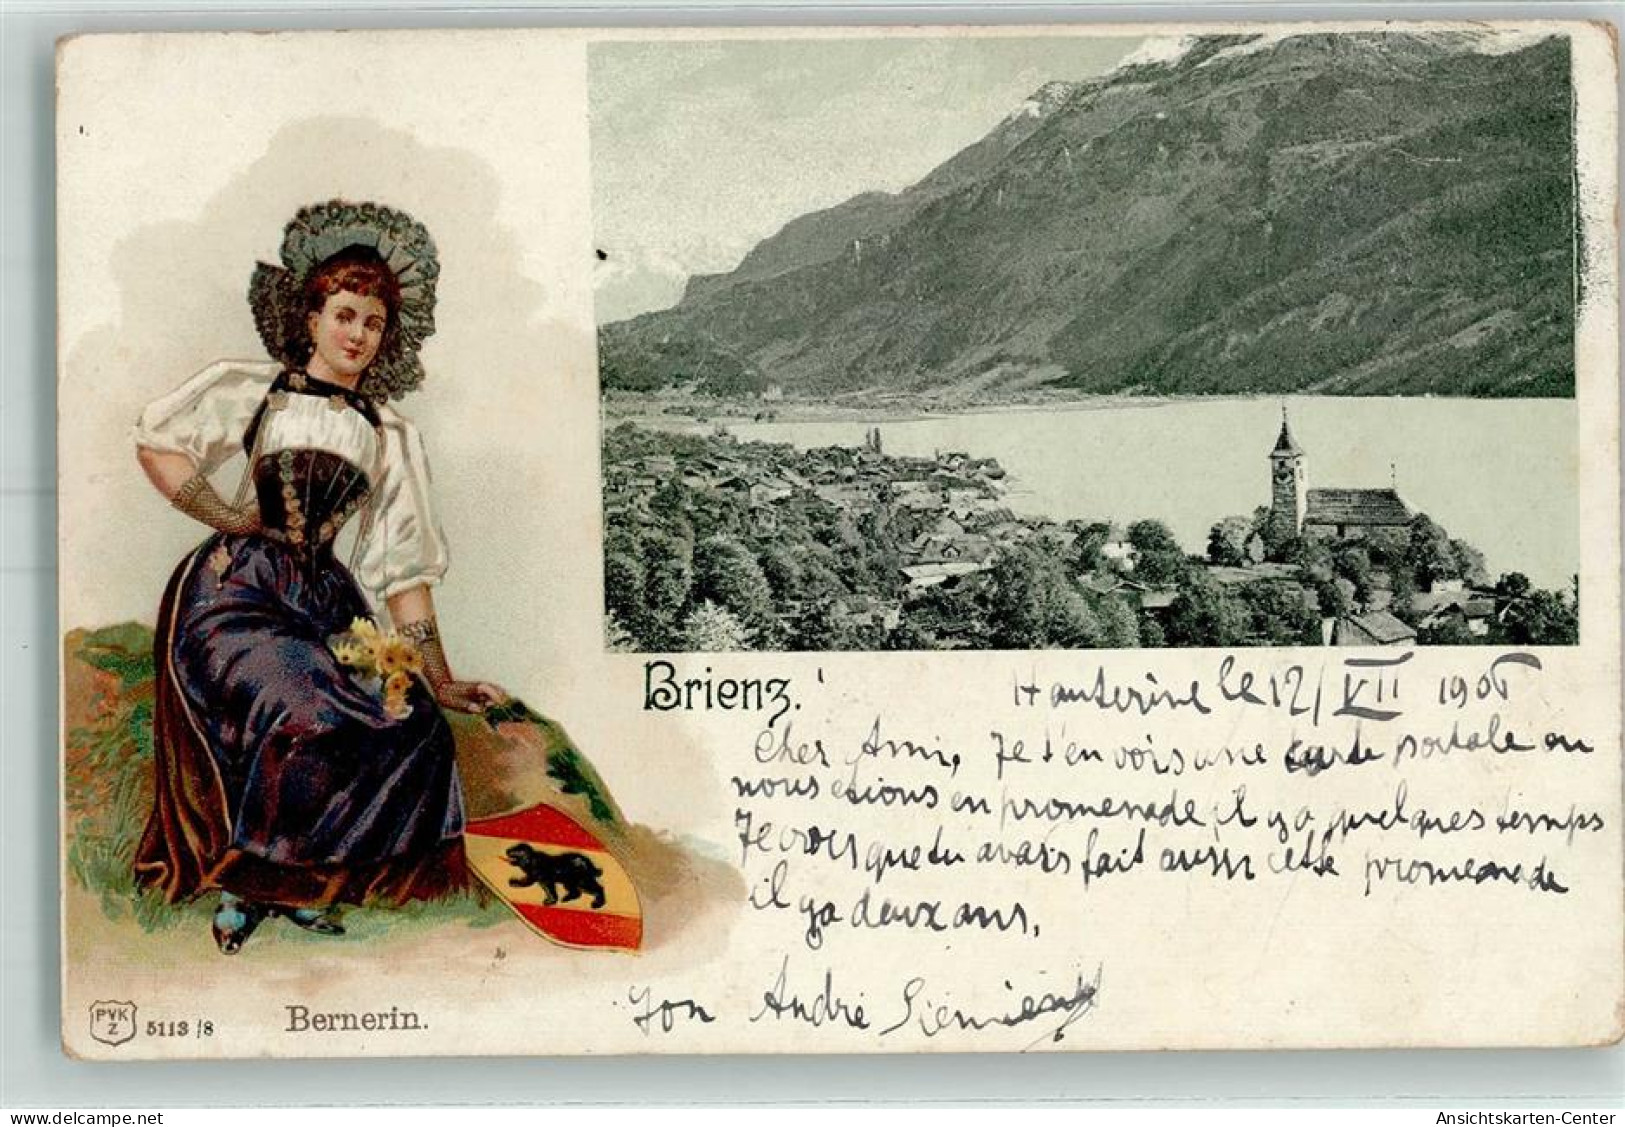 Brienz.
Hauterive le 12/VII 1906
Cher Ami, Je t'envois une carte postale ou
nous etions en promenade il y a quelques temps
Je crois que tu avais fait aussi cette promenade
il y a deux ans.
Ton André
PVK
Z
5113/8
Bernerin.
Ansichtskarten-Center